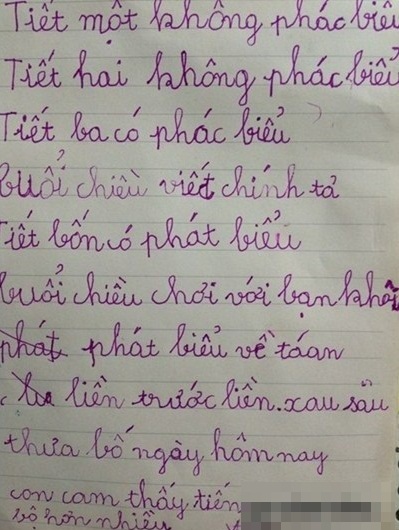 Tiết một không phác biểu
Tiết hai không phác biểu
Tiết ba có phác biểu
buổi chiều viết chính tả
Tiết bốn có phát biểu
buổi chiều chơi với bạn khôi
phát phát biểu về táan
liền trước liền. xau sấu
thưa bố ngày hôm nay
con cam thấy tiến
bộ hơn nhiều